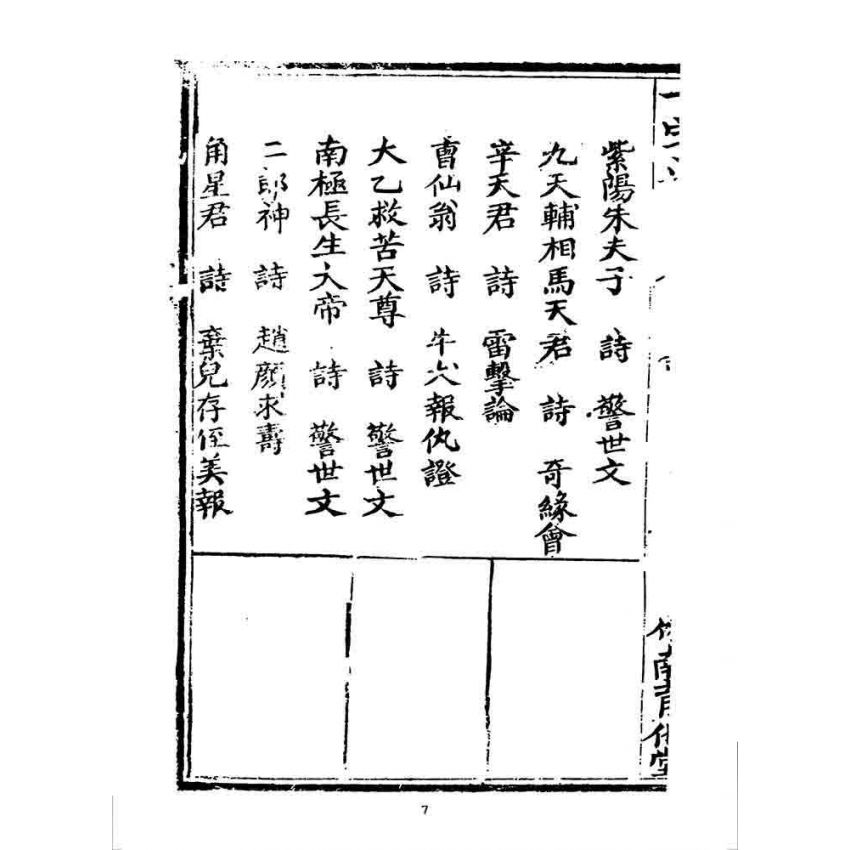 紫陽朱夫子　詩　警世文
九天輔相馬天君　詩　奇緣會
辛天君　詩　雷擊論
曹仙翁　詩　牛六報仇證
大乙救苦天尊　詩　警世文
南極長生大帝　詩　警世文
二郎神　詩　趙顏求壽
角星君　詩　棄兒存侄美報
7